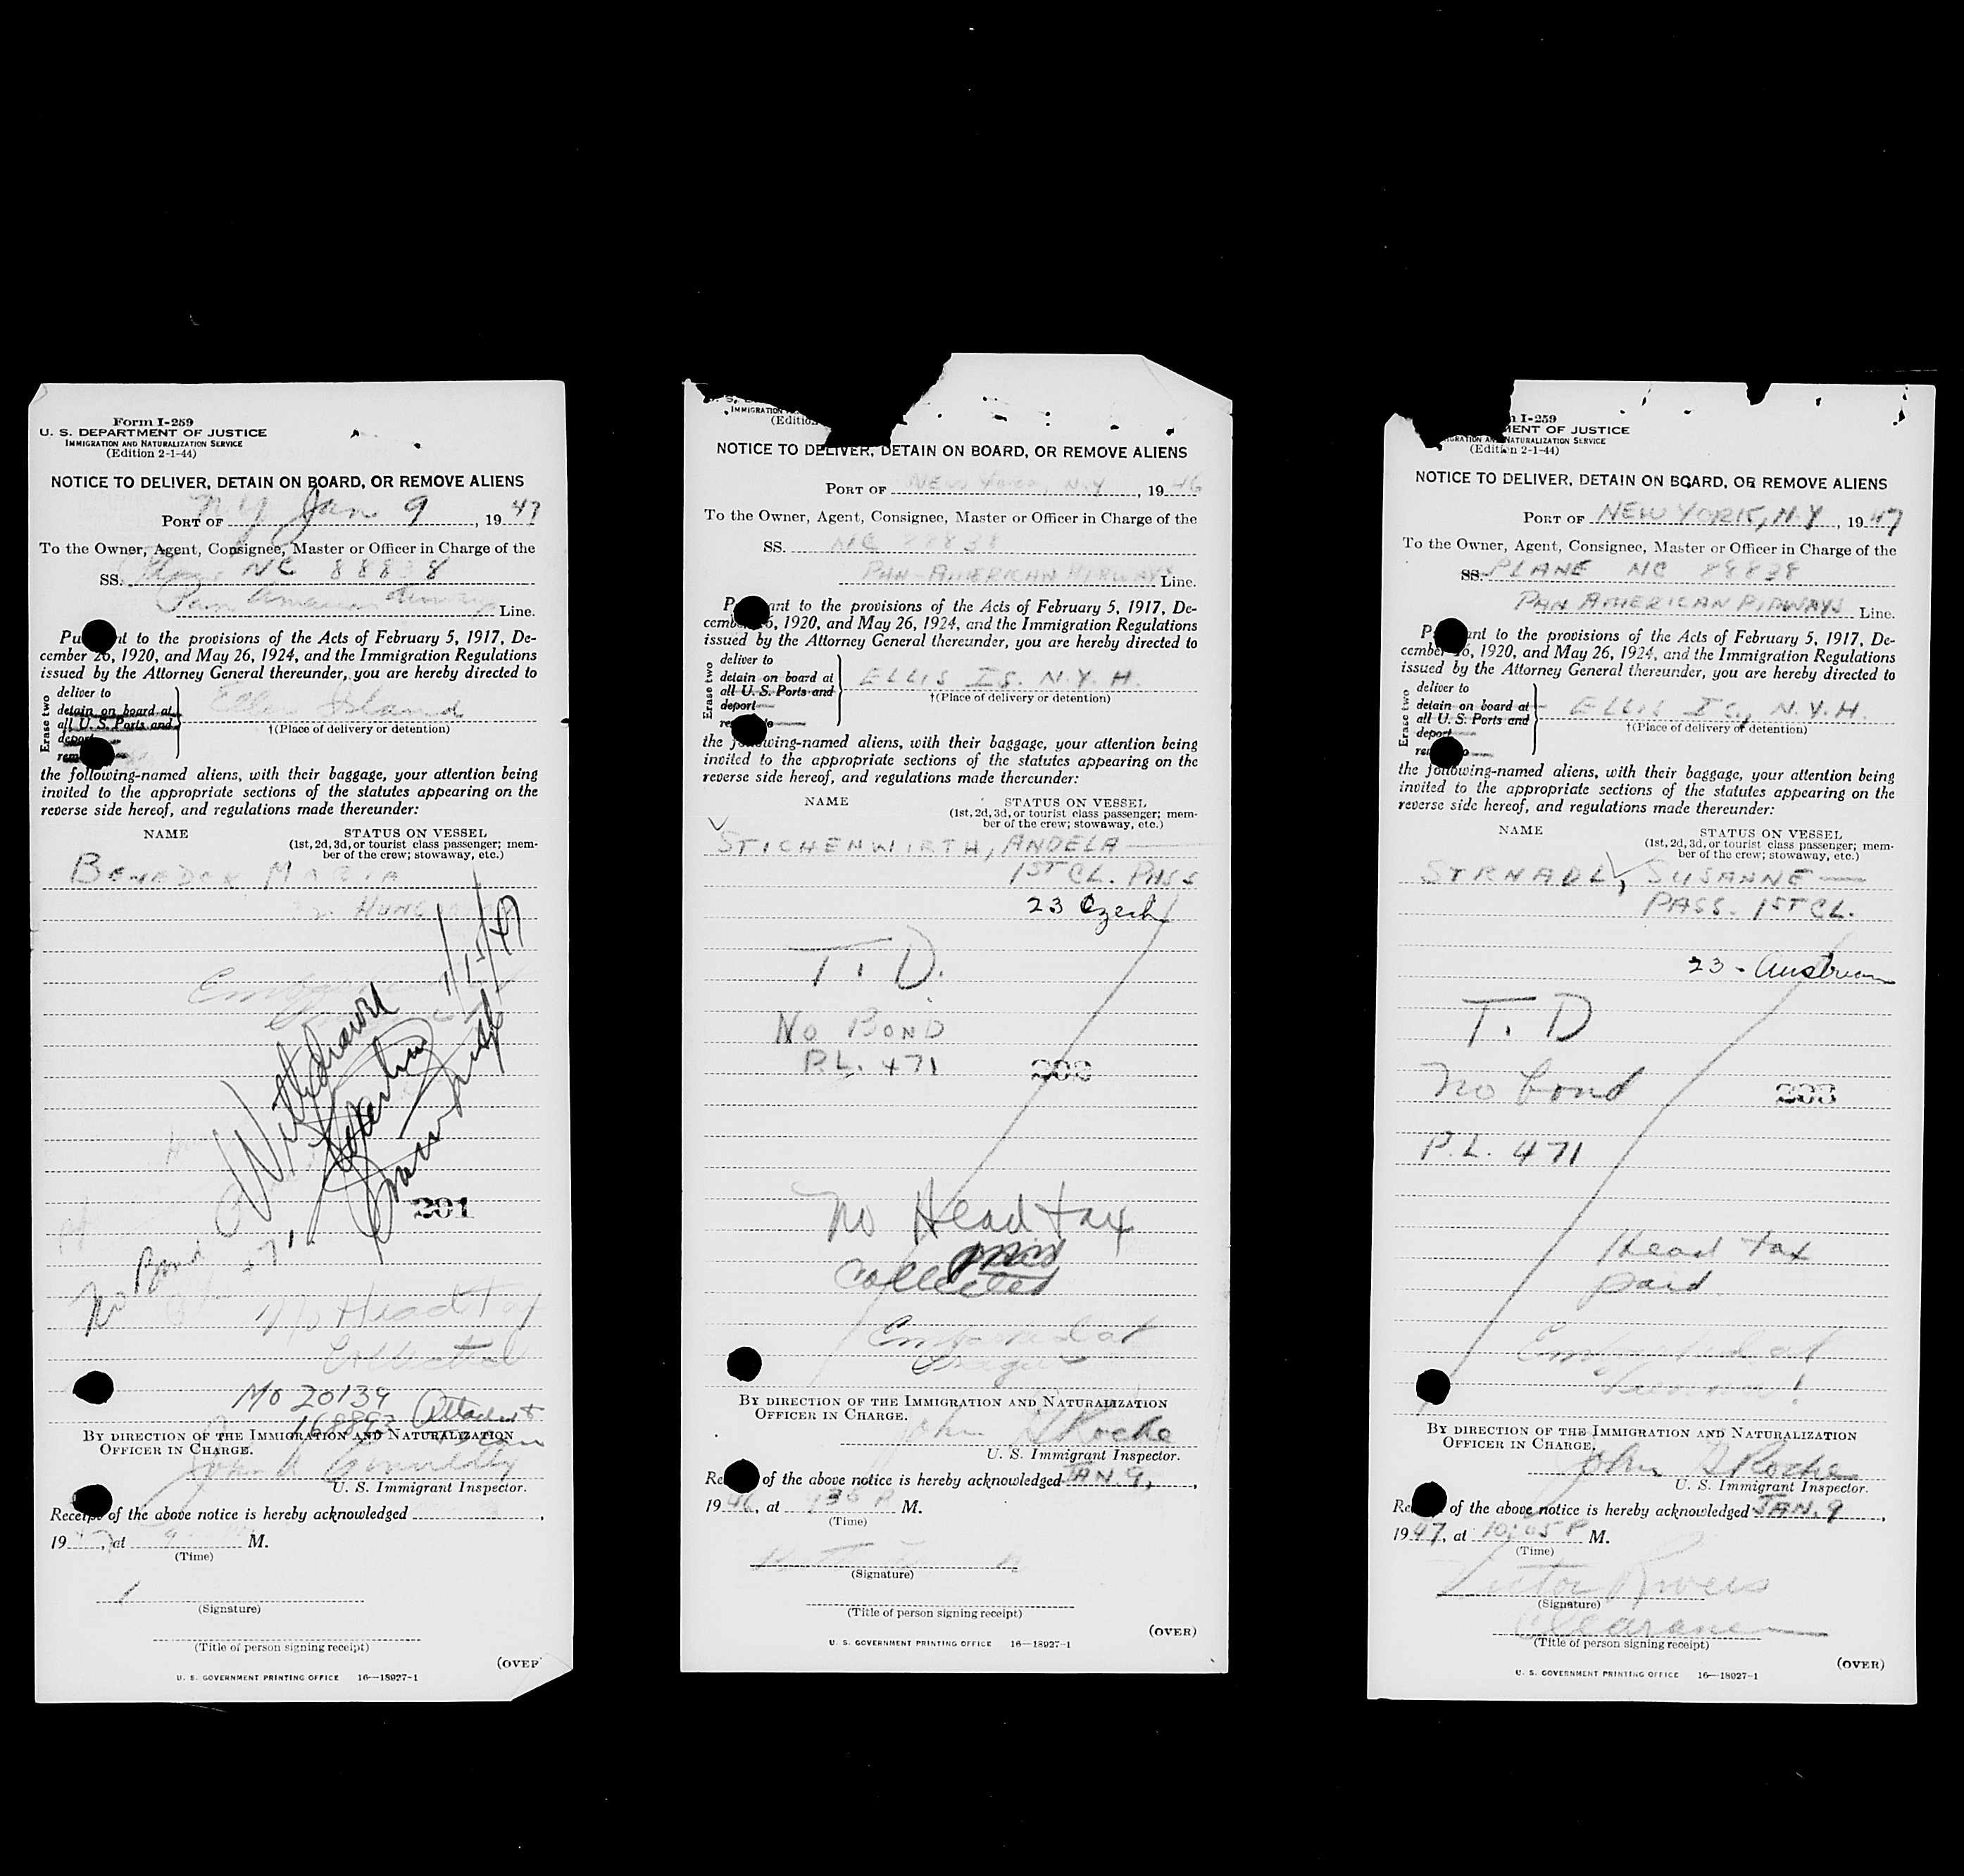 Form I-259
U. S. DEPARTMENT OF JUSTICE
IMMIGRATION AND NATURALIZATION SERVICE
(Edition 2-1-44)
NOTICE TO DELIVER, DETAIN ON BOARD, OR REMOVE ALIENS
PORT OF N.Y. Jan 9, 1947
To the Owner, Agent, Consignee, Master or Officer in Charge of the
SS. NC 88838
Pan American Line.
to the provisions of the Acts of February 5, 1917, De-
cember 26, 1920, and May 26, 1924, and the Immigration Regulations
issued by the Attorney General thereunder, you are hereby directed to
Erase two
deliver to
detain on board at
all U. S. Ports and
deport
Ellis Island
†(Place of delivery or detention)
the following-named aliens, with their baggage, your attention being
invited to the appropriate sections of the statutes appearing on the
reverse side hereof, and regulations made thereunder:
NAME STATUS ON VESSEL
(1st, 2d, 3d, or tourist class passenger; mem-
ber of the crew; stowaway, etc.)
MARIA
Withdrawn 1/15/47
201
No Bond
No Head tax
Collected
MO 20139
168893 Attached
BY DIRECTION OF THE IMMIGRATION AND NATURALIZATION
OFFICER IN CHARGE.
John
U. S. Immigrant Inspector.
Receipt of the above notice is hereby acknowledged ,
19 , at M.
(Time)
(Signature)
(Title of person signing receipt)
(OVER
U. S. GOVERNMENT PRINTING OFFICE 16—18927-1
IMMIGRATION
(Edition
NOTICE TO DELIVER, DETAIN ON BOARD, OR REMOVE ALIENS
PORT OF NEW YORK, N.Y, 1946
To the Owner, Agent, Consignee, Master or Officer in Charge of the
SS. NC 88838
PAN-AMERICAN AIRWAYS Line.
to the provisions of the Acts of February 5, 1917, De-
1920, and May 26, 1924, and the Immigration Regulations
issued by the Attorney General thereunder, you are hereby directed to
Erase two
deliver to
detain on board at
all U. S. Ports and
deport
ELLIS IS. N.Y.H.
†(Place of delivery or detention)
the following-named aliens, with their baggage, your attention being
invited to the appropriate sections of the statutes appearing on the
reverse side hereof, and regulations made thereunder:
NAME STATUS ON VESSEL
(1st, 2d, 3d, or tourist class passenger; mem-
ber of the crew; stowaway, etc.)
STICHENWIRTH, ANDELA
1ST CL. PASS
23 Czech
T. D.
NO BOND
P.L. 471
No Head tax
Collected
Embarked at
Prague
BY DIRECTION OF THE IMMIGRATION AND NATURALIZATION
OFFICER IN CHARGE.
John G Roche
U. S. Immigrant Inspector.
of the above notice is hereby acknowledged JAN. 9,
1946, at M.
(Time)
(Signature)
(Title of person signing receipt)
(OVER)
U. S. GOVERNMENT PRINTING OFFICE 16—18927-1
I-259
MENT OF JUSTICE
NATURALIZATION SERVICE
(Edition 2-1-44)
NOTICE TO DELIVER, DETAIN ON BOARD, OR REMOVE ALIENS
PORT OF NEW YORK, N.Y, 1947
To the Owner, Agent, Consignee, Master or Officer in Charge of the
SS. PLANE NC 88838
PAN AMERICAN AIRWAYS Line.
to the provisions of the Acts of February 5, 1917, De-
cember 1920, and May 26, 1924, and the Immigration Regulations
issued by the Attorney General thereunder, you are hereby directed to
Erase two
deliver to
detain on board at
all U. S. Ports and
deport
ELLIS IS, N.Y.H.
†(Place of delivery or detention)
the following-named aliens, with their baggage, your attention being
invited to the appropriate sections of the statutes appearing on the
reverse side hereof, and regulations made thereunder:
NAME STATUS ON VESSEL
(1st, 2d, 3d, or tourist class passenger; mem-
ber of the crew; stowaway, etc.)
STRNADL, SUSANNE
PASS. 1ST CL.
23 - Austrian
T. D
No bond
203
P.L. 471
Head tax
paid
Embarked at
Vienna!
BY DIRECTION OF THE IMMIGRATION AND NATURALIZATION
OFFICER IN CHARGE.
John G Roche
U. S. Immigrant Inspector.
of the above notice is hereby acknowledged JAN. 9,
1947, at 10:05 P M.
(Time)
Victor Rivers
(Signature)
Clearance
(Title of person signing receipt)
(OVER)
U. S. GOVERNMENT PRINTING OFFICE 16—18927-1